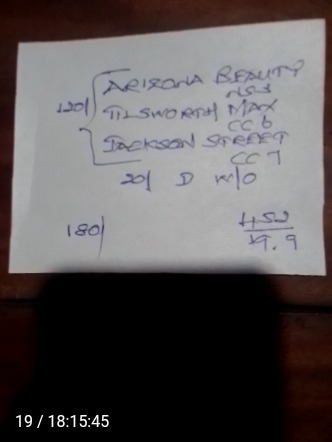 120/ ARIZONA BEAUTY
NSJ
TILSWORTH MAX
CC 6
JACKSON STREET
CC 7
20/ D W/O
180/
19.9
19 / 18:15:45